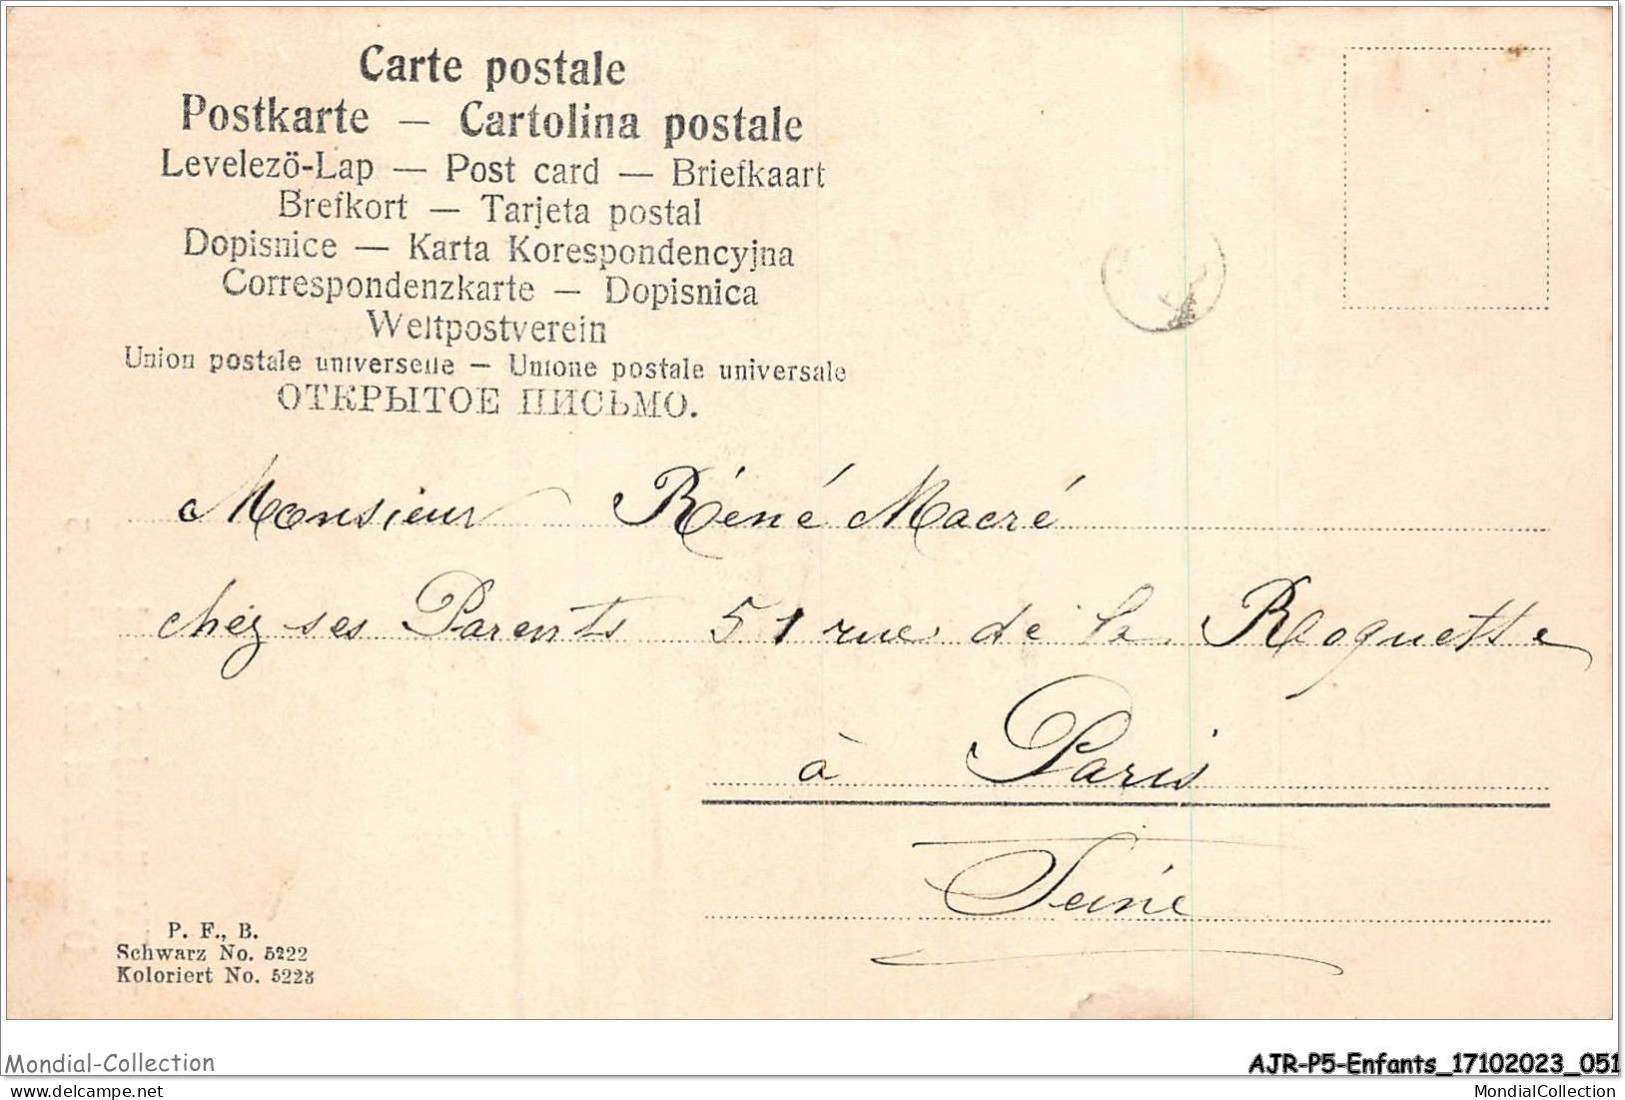 Carte postale
Postkarte — Cartolina postale
Levelező-Lap — Post card — Briefkaart
Brefkort — Tarjeta postal
Dopisnice — Karta Korespondencyjna
Correspondenzkarte — Dopisnica
Weltpostverein
Union postale universelle — Unione postale universale
ОТКРЫТОЕ ПИСЬМО.
Monsieur Réné Macré
chez ses Parents 51 rue de la Roquette
à Paris
Seine
P. F., B.
Schwarz No. 5222
Koloriert No. 5223
Mondial-Collection
AJR-P5-Enfants_17102023_051
MondialCollection